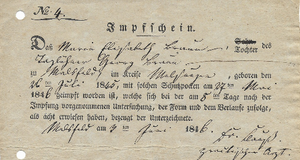 No 4.
Impfschein.
Daß Maria Elisabeth Braun Tochter des
Taglöhner Georg Braun
zu Malsfeld im Kreise Melsungen, geboren den
26 ten Juli 1845 mit ächten Schutzpocken am 27 ten Mai
1846 geimpft worden ist, welche sich bei der am 8 Tage nach der
Impfung vorgenommenen Untersuchung, der Form und dem Verlaufe zufolge,
als ächt erwiesen haben, bezeugt der Unterzeichnete.
Malsfeld am 4 Juni 1846